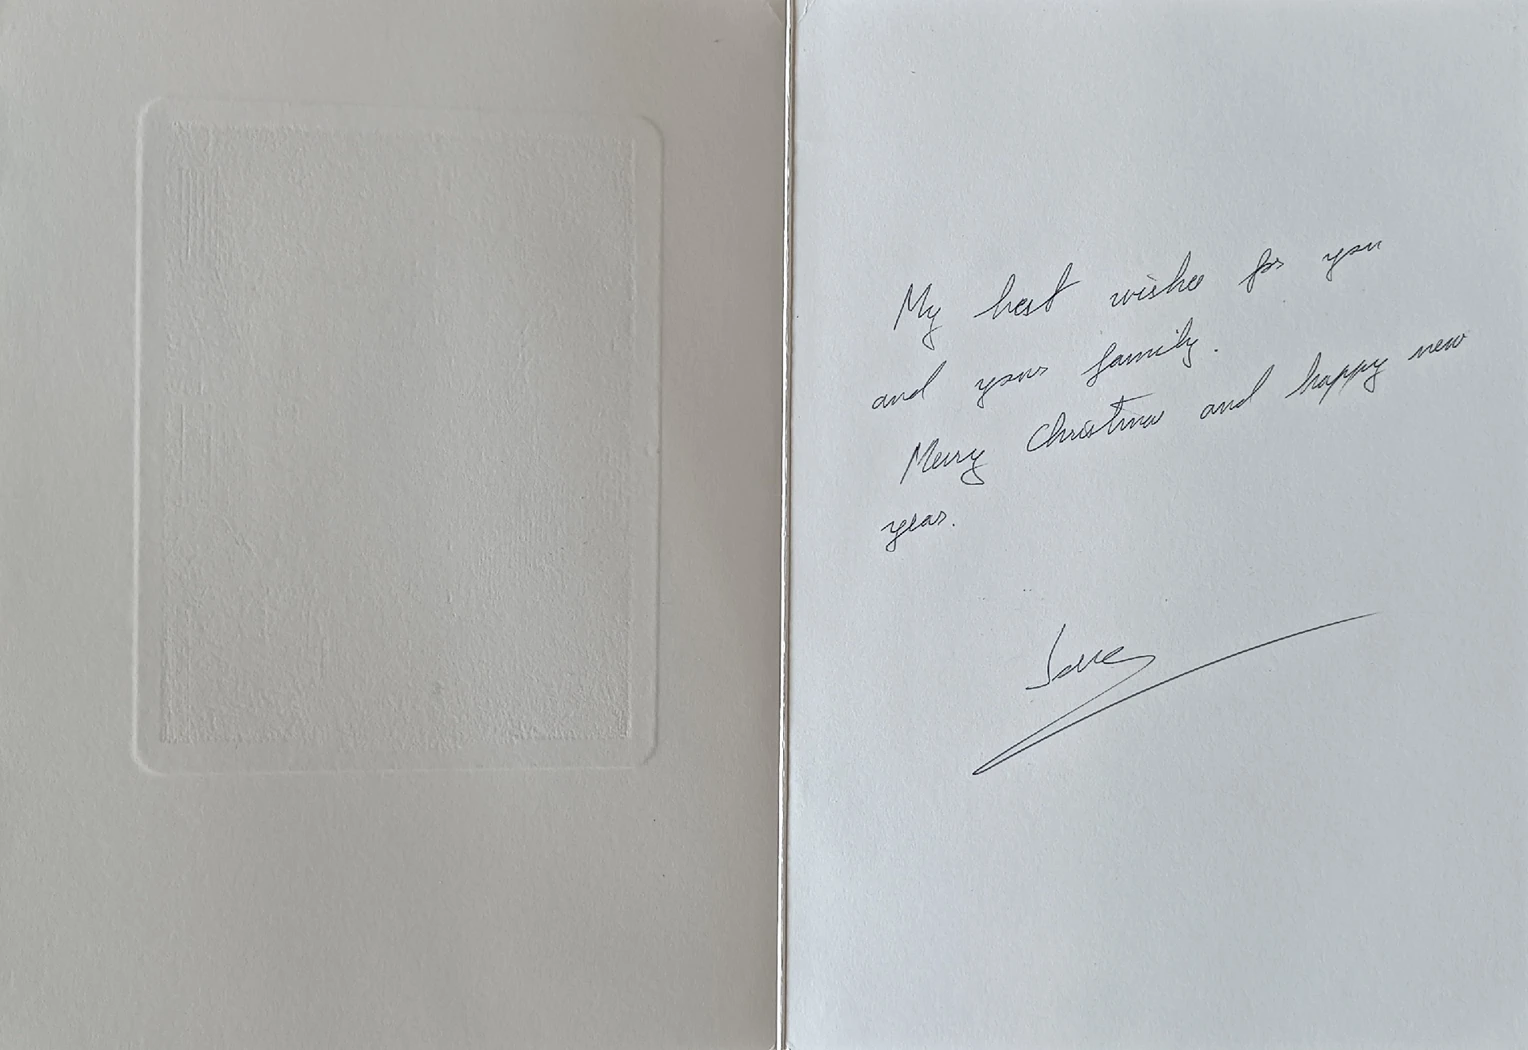 My best wishes for you
and your family.
Merry Christmas and happy new
year.